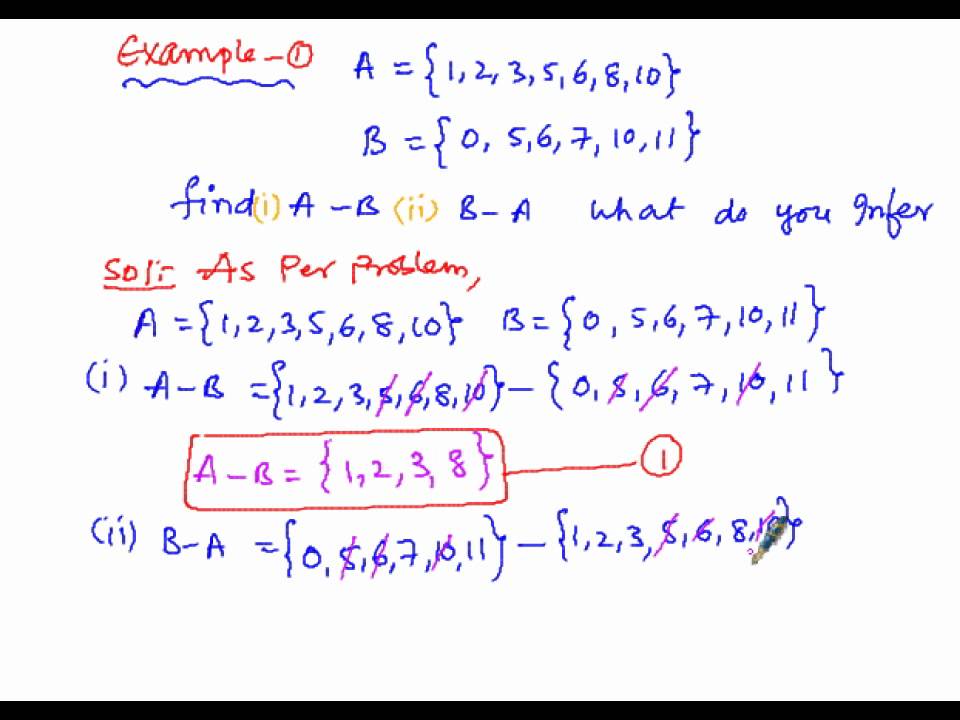 Example-①
A = {1, 2, 3, 5, 6, 8, 10}
B = {0, 5, 6, 7, 10, 11}
find (i) A - B (ii) B - A What do you Infer
Sol:- As Per Problem,
A = {1, 2, 3, 5, 6, 8, 10} B = {0, 5, 6, 7, 10, 11}
(i) A - B = {1, 2, 3, 5, 6, 8, 10} - {0, 5, 6, 7, 10, 11}
A - B = {1, 2, 3, 8} ①
(ii) B - A = {0, 5, 6, 7, 10, 11} - {1, 2, 3, 5, 6, 8, 10}